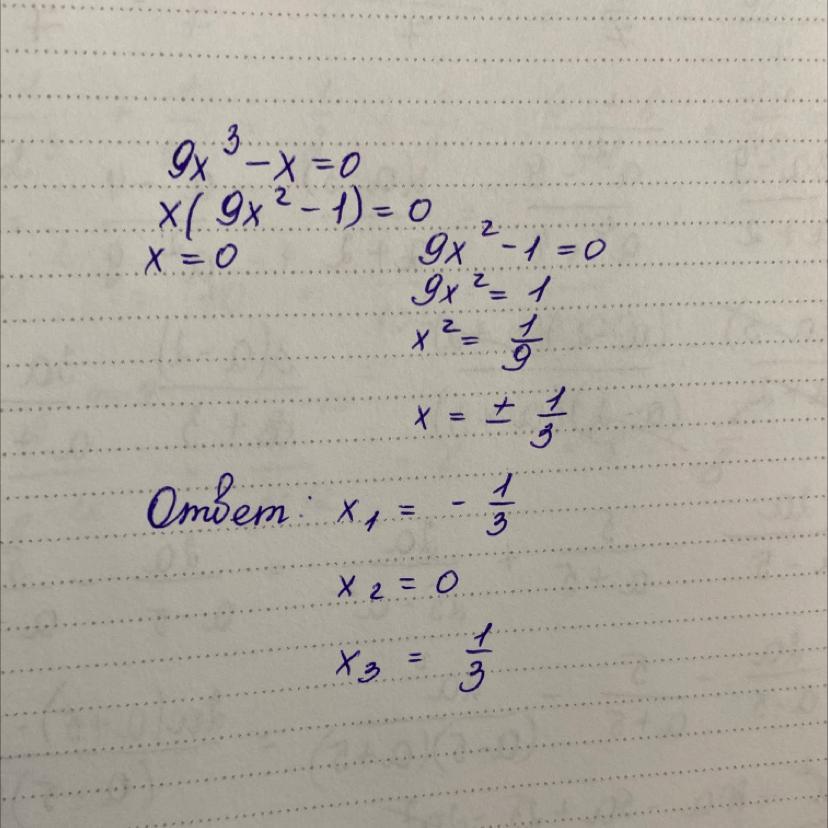 9x³ - x = 0
x(9x² - 1) = 0
x = 0
9x² - 1 = 0
9x² = 1
x² = 1/9
x = ± 1/3
Ответ: x₁ = - 1/3
x₂ = 0
x₃ = 1/3